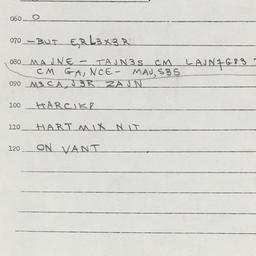 060 O
070 -BUT E,RL3X3R
080 MAJNE - TAJN3S CM LAJN4GP3
CM GA,NCE- MAU,SBS
090 M3CA,J3R ZAJN
100 HARCIKP
110 HART MIX NIT
120 ON VANT